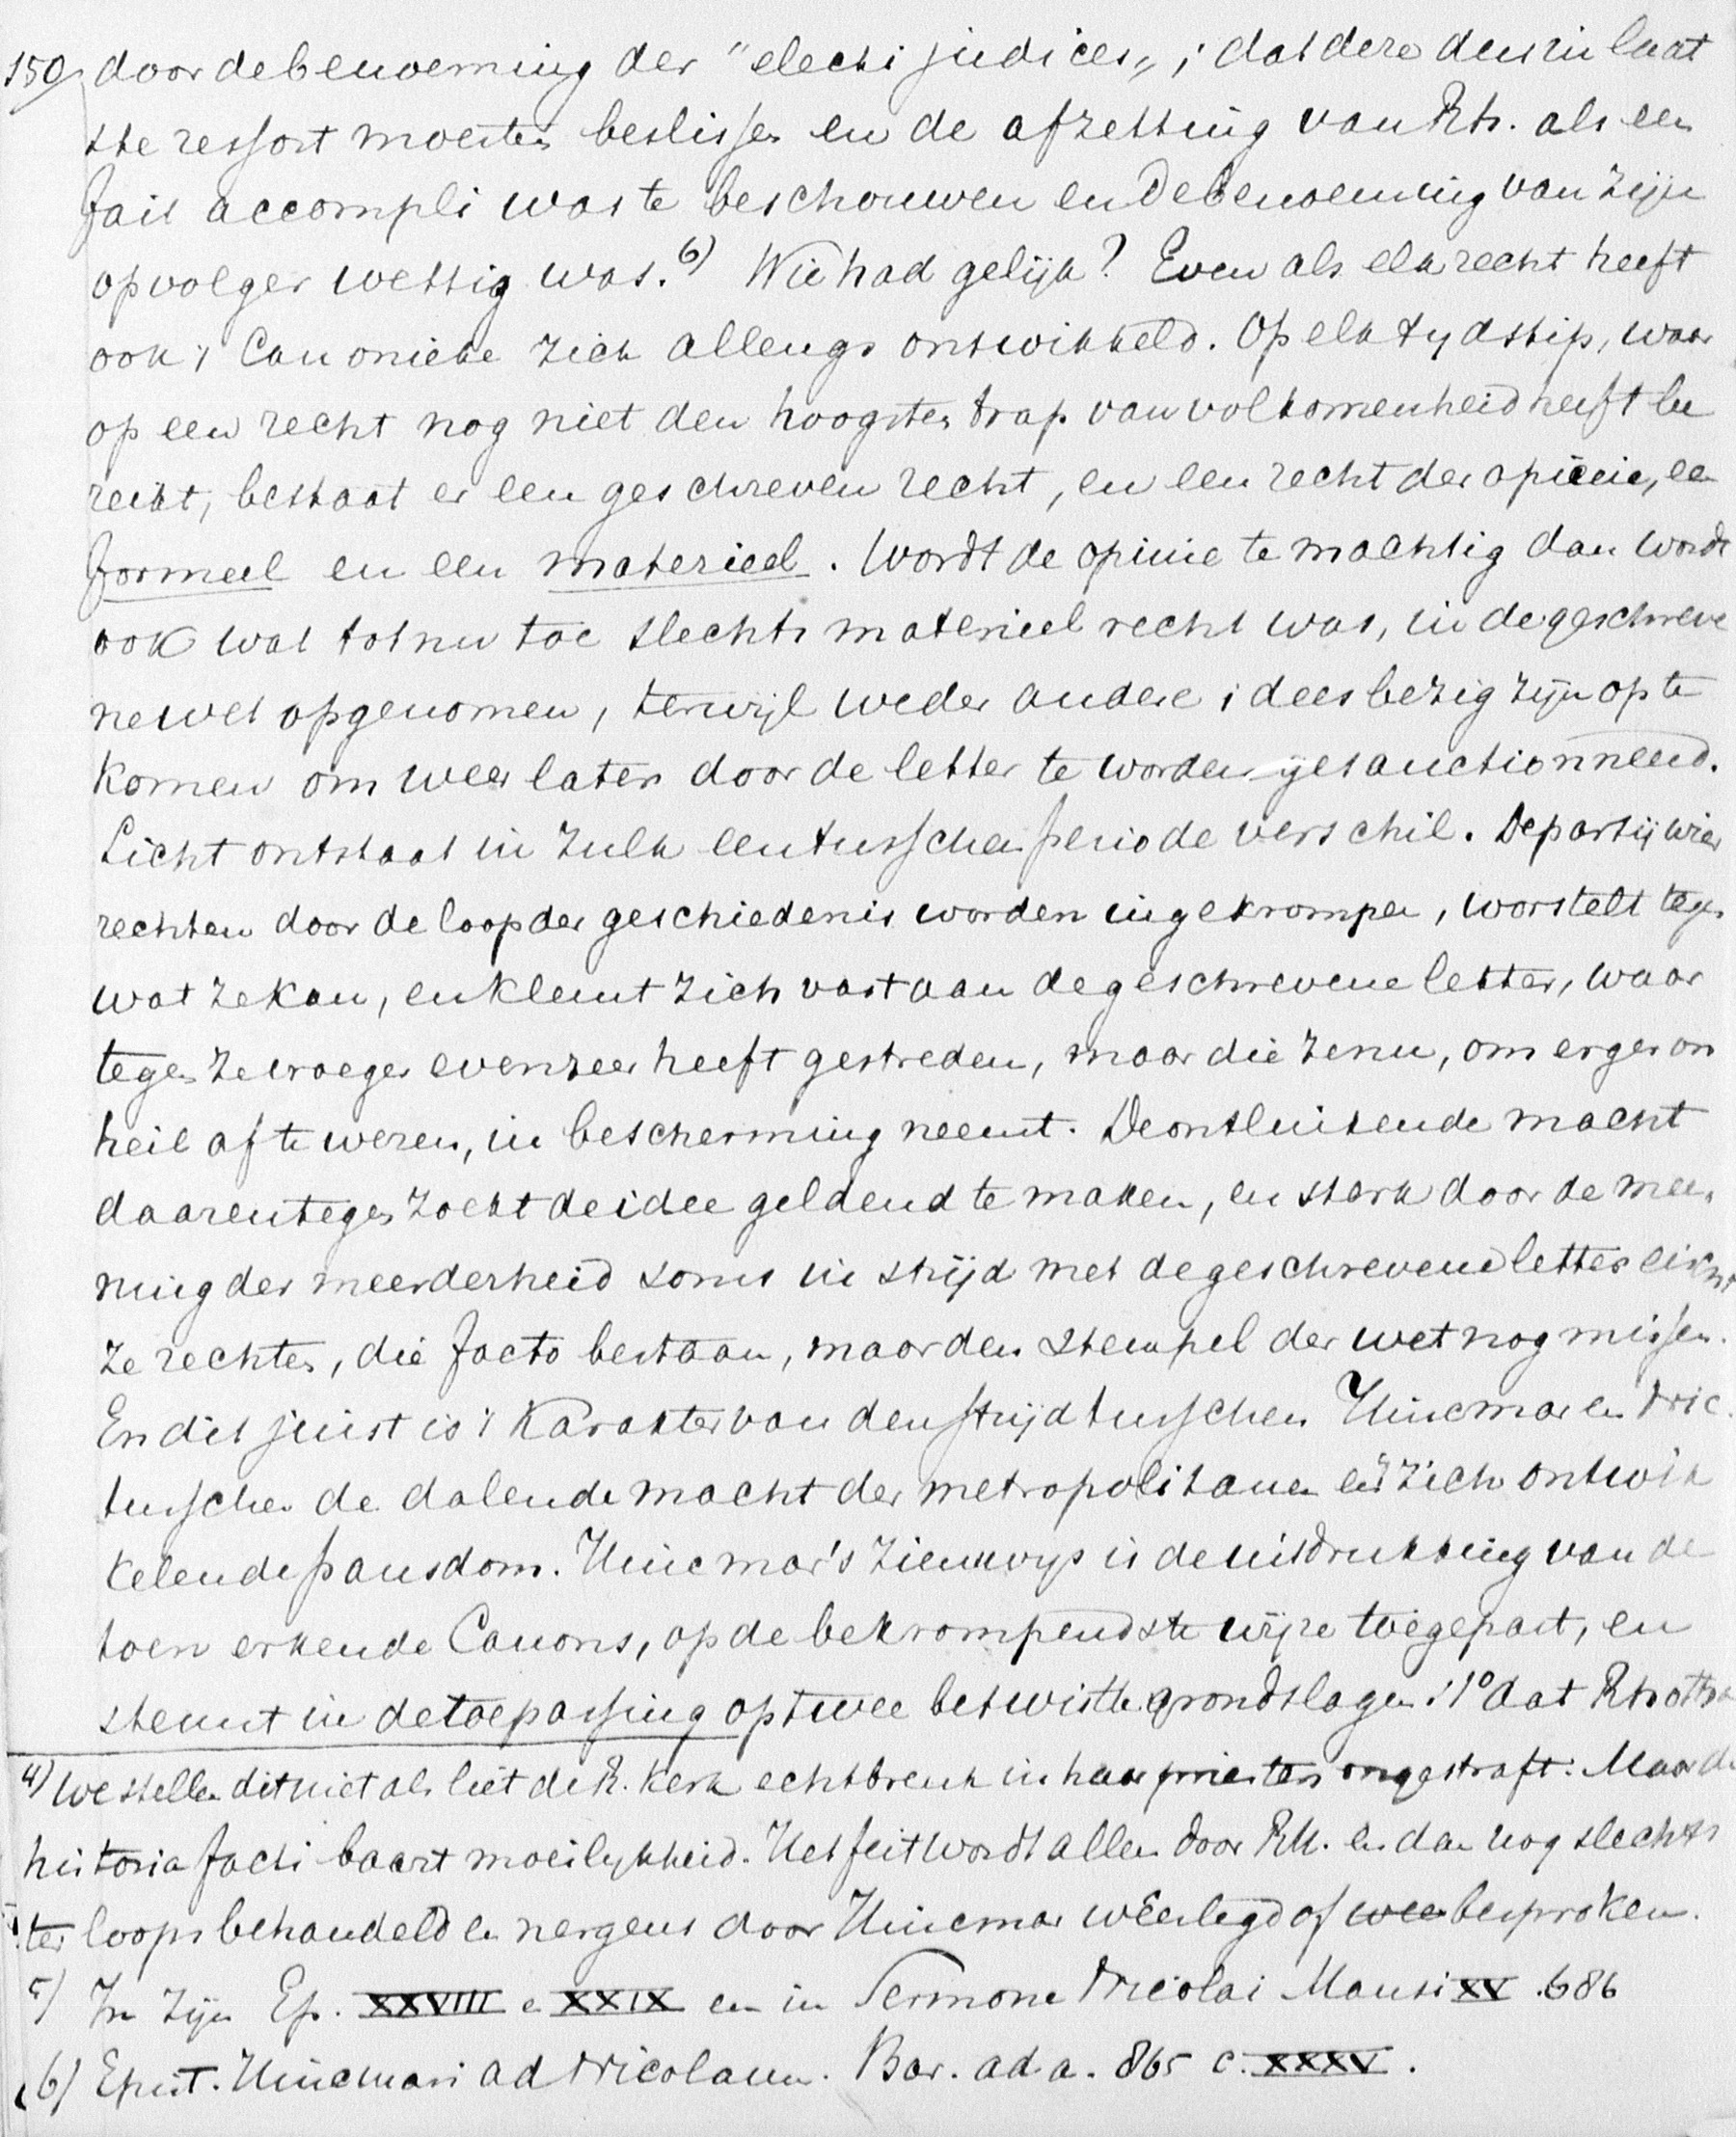 150 door de benoeming der "electi judices„; dat deze dus in laat
ste ressort moesten beslissen en de afzetting van Rh. als een
fait accompli was te beschouwen en de benoeming van zijn
opvolger wettig was. 6) Wie had gelijk? Even als elk recht heeft
ook 't Canonieke zich allengs ontwikkeld. Op elk tydstip, waar
op een recht nog niet den hoogsten trap van volkomenheid heeft be
reikt, bestaat er een geschreven recht, en een recht der opinie, een
formeel en een materieel. Wordt de opinie te machtig dan wordt
ook wat tot nu toe slechts materieel recht was, in de geschreve
ne wet opgenomen, terwijl weder andere idees bezig zijn op te
komen om weer later door de letter te worden gesanctionneerd.
Licht ontstaat in zulk een tusschenperiode verschil. De partij wier
rechten door de loop der geschiedenis worden ingekrompen, worstelt tegen
wat ze kan, en klemt zich vast aan de geschrevene letter, waar
tegen ze vroeger evenzeer heeft gestreden, maar die ze nu, om erger on
heil af te weren, in bescherming neemt. De ontluikende macht
daarentegen zoekt de idee geldend te maken, en sterk door de mee
ning der meerderheid soms in strijd met de geschrevene letter eischt
ze rechten, die facto bestaan, maar den stempel der wet nog missen.
En dit juist is 't karakter van den strijd tusschen Hincmar en Nic.
tusschen de dalende macht der metropolitanen en 't zich ontwik
kelende pausdom. Hincmar's zienswijs is de uitdrukking van de
toen erkende Canons, op de bekrompendste wijze toegepast, en
steunt in de toepassing op twee betwistte grondslagen: 1° dat Rhothad
4) We stellen dit niet als liet de R. Kerk echtbreuk in haar priesters ongestraft. Maar de
historia facti baart moeilykheid. Het feit wordt alleen door Rh. en dan nog slechts
ter loops behandeld en nergens door Hincmar wEerlegd of besproken.
5) In zijn Ep. XXVIII e XXIX en in Sermone Nicolai Mansi XV. 686
6) Epist. Hincmari ad Nicolaum. Bar. ad a. 865 c. XXXV.